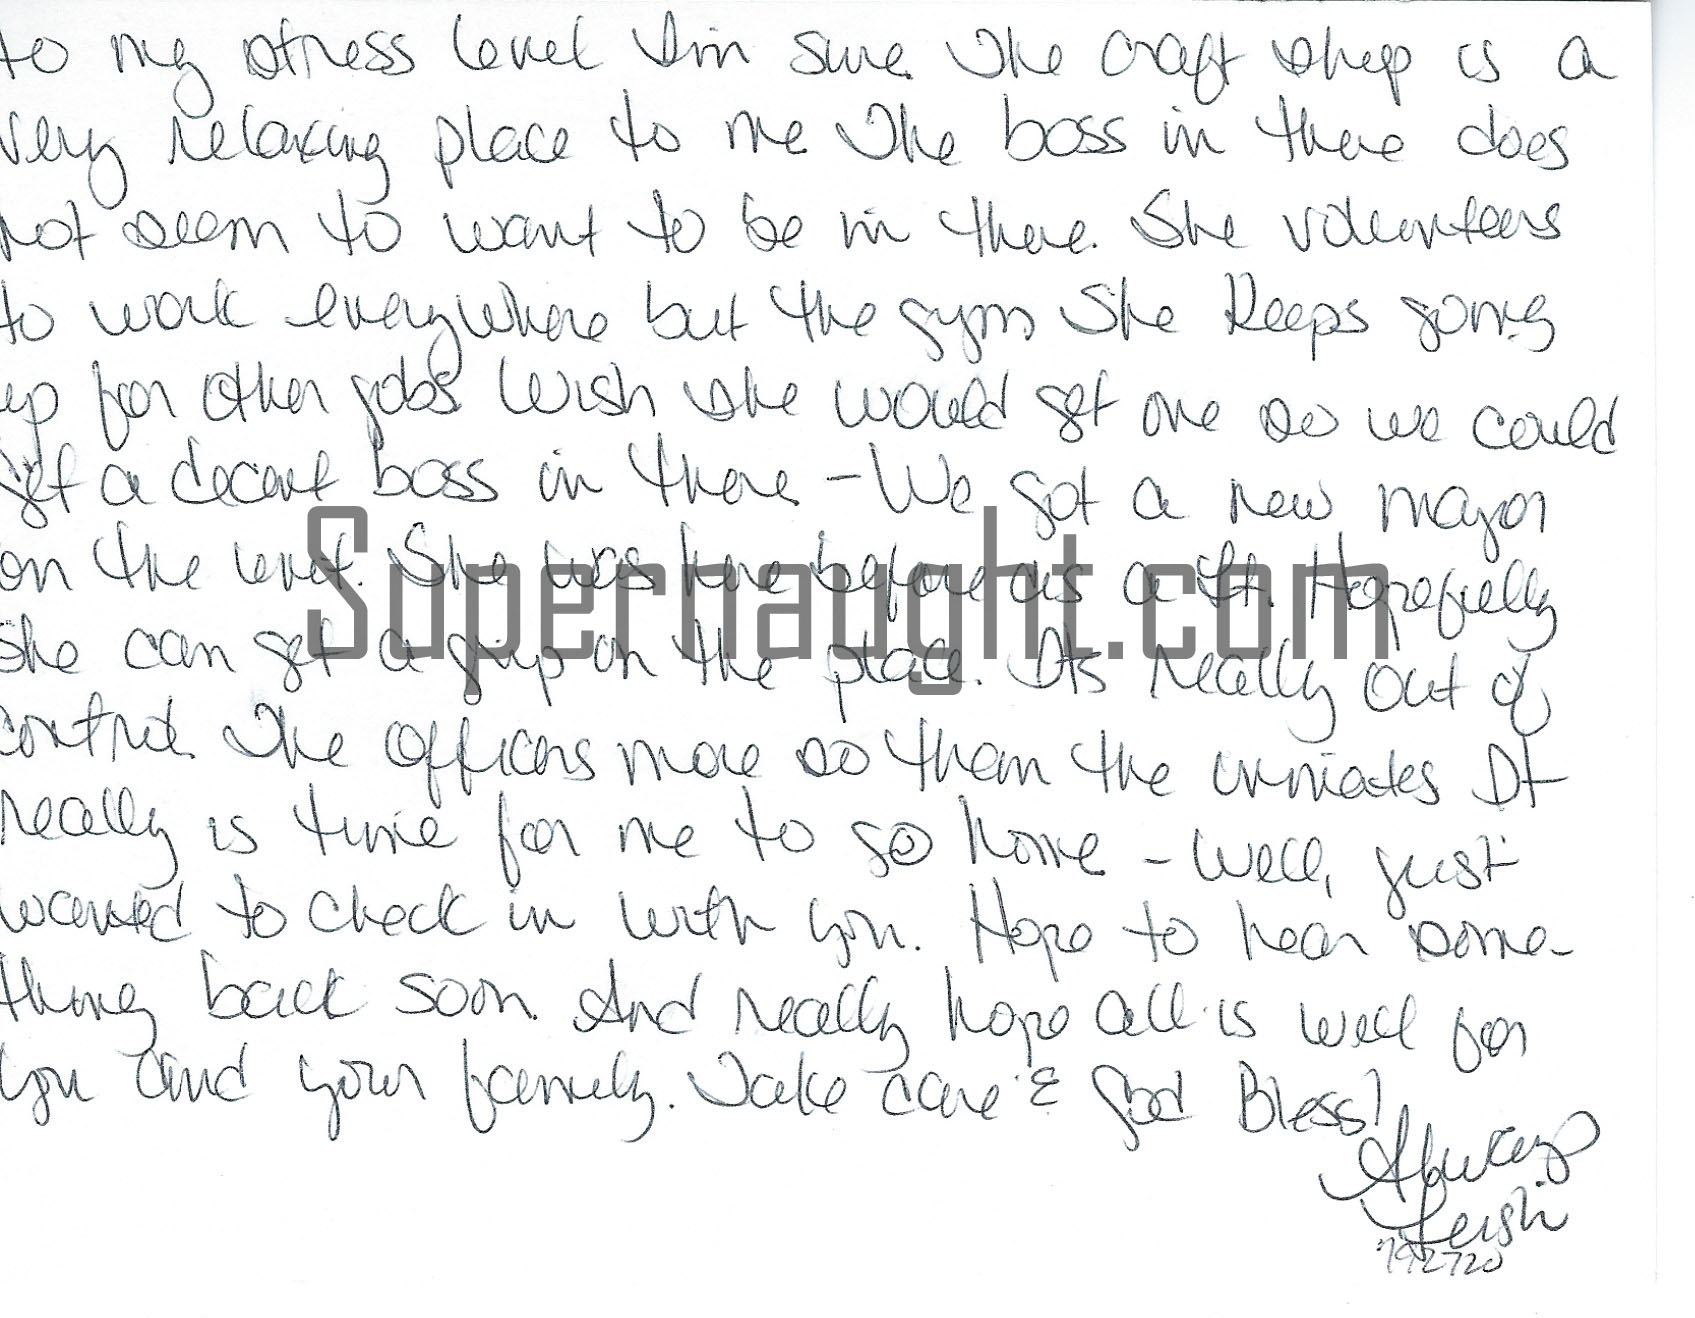 to my stress level I'm sure. The craft shop is a
very relaxing place to me The boss in there does
not seem to want to be in there. She volunteers
to work everywhere but the gym She keeps going
up for other jobs Wish she would get one so we could
get a decent boss in there - We got a new major
on the unit. She was here before as a Lt. Hopefully
Supernaught.com
she can get a grip on the place. Its really out of
control. The officers more so than the inmates It
really is time for me to go home - Well, just
wanted to check in with you. Hope to hear some-
thing back soon. And really hope all is well for
you and your family. Take care & God Bless!
Always
792720